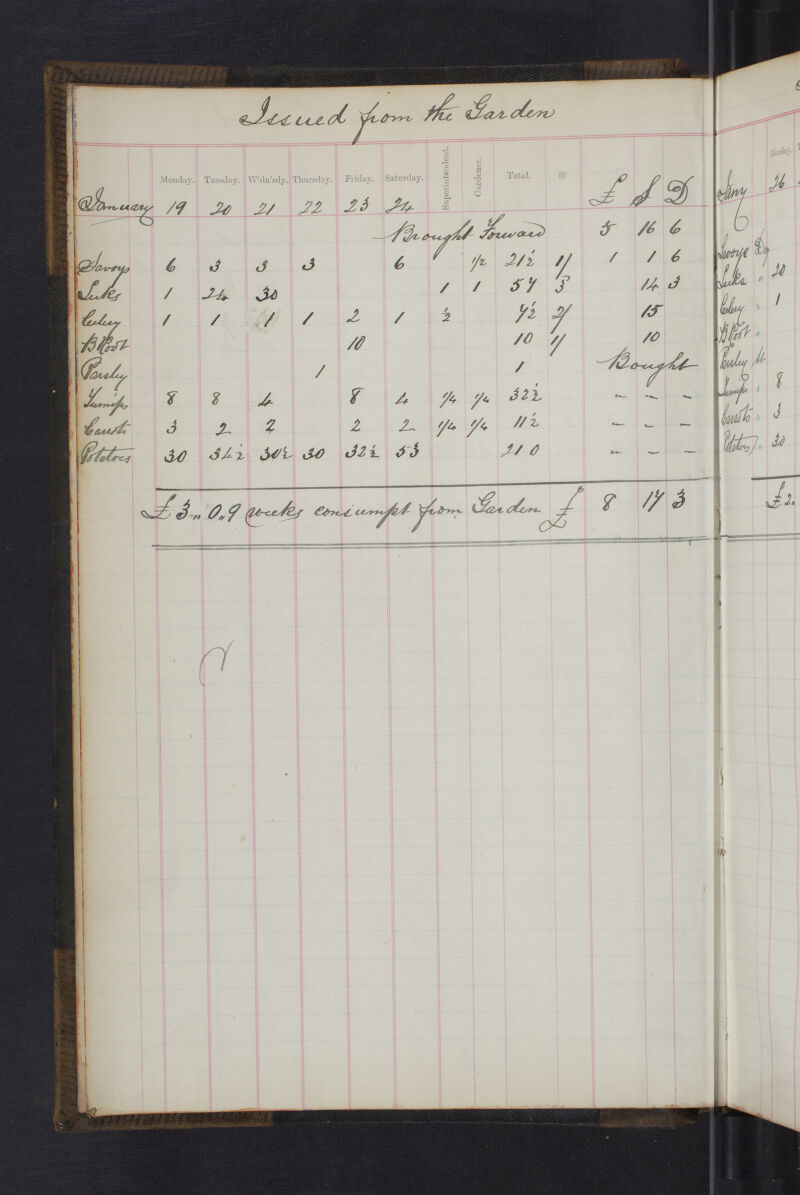 Issued from the Garden
Monday. Tuesday. W'dn'sdy. Thursday. Friday. Saturday. Superintendent. Gardener. Total. @
January 19 20 21 22 23 24 £ S D
Brought Forward 5 16 6
Savoys 6 3 3 3 6 1/2 21½ 1/ 1 1 6
Leeks 1 24 30 1 1 57 3 14 3
Celery 1 1 1 1 2 1 ½ 7½ 2/ 15
B Root 10 10 1/ 10
Parsley 1 1 Bought
Turnips 8 8 4 8 4 1/4 1/4 32½ - - -
Carrots 3 2 2 2 2 1/4 1/4 11½ - - -
Potatoes 30 34½ 30½ 30 32½ 53 210 - - -
£3.. 0.. 9 weeks consumpt from Garden £ 8 17 3
Monday.
Jany 26
Savoys Dz
Leeks " 20
Celery " 1
B Root "
Parsley lb
Turnips " 8
Carrots " 3
Potatoes " 30
£2.